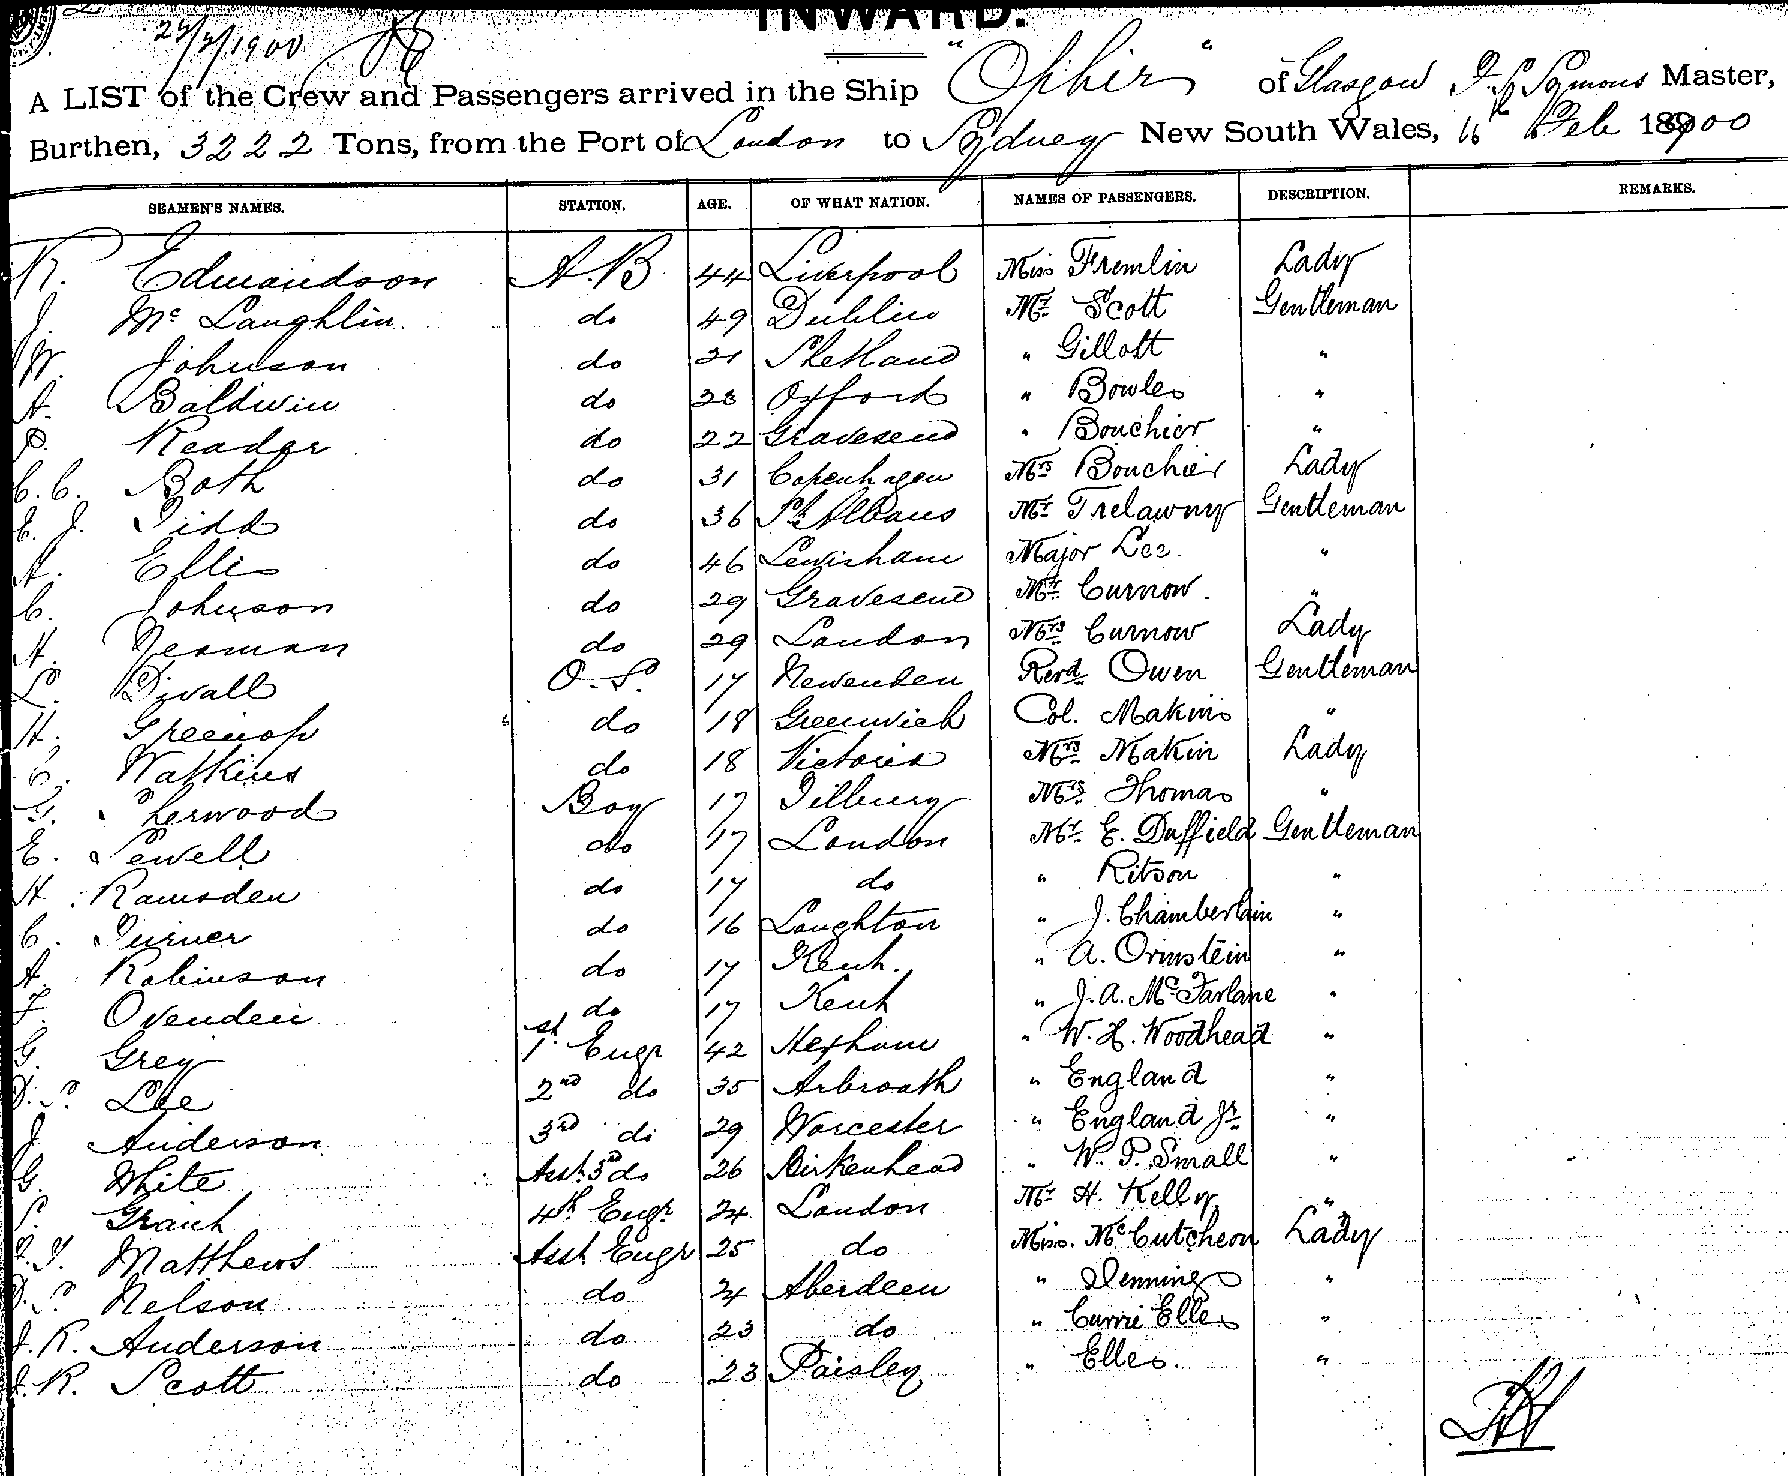 INWARD.
1900
A LIST of the Crew and Passengers arrived in the Ship "Ophir" of Glasgow Symons Master,
Burthen, 3222 Tons, from the Port of London to Sydney New South Wales, 16th Feb 1900
SEAMEN'S NAMES. STATION. AGE. OF WHAT NATION. NAMES OF PASSENGERS. DESCRIPTION. REMARKS.
R. Edmondson A.B 44 Liverpool Miss Fremlin Lady
J. McLaughlin do 49 Dublin Mr Scott Gentleman
W. Johnson do 21 Shetland " Gillott "
A. Baldwin do 28 Oxford " Bowles "
Reader do 22 Gravesend " Bouchier "
C.C. Both do 31 Copenhagen Mrs Bouchier Lady
C. J. Tidd do 36 St Albans Mr Trelawny Gentleman
A. Ellis do 46 Lewisham Major Lee. "
C. Johnson do 29 Gravesend Mr Curnow. "
A. Yeoman do 29 London Mrs Curnow Lady
L. Divall O.S. 17 Newenden Revd Owen Gentleman
H. Greenop do 18 Greenwich Col. Makins "
C. Watkins do 18 Victoria Mrs Makin Lady
Sherwood Boy 17 Tilbury Mrs Thomas "
E. Sewell do 17 London Mr E. Duffield Gentleman
H. Ramsden do 17 do " Ritson "
C. Turner do 16 Loughton " J. Chamberlain "
A. Robinson do 17 Kent. " A. Ornstein "
F. Ovenden do 17 Kent " J.A. McFarlane "
G. Grey 1st Engr 42 Hexham " W. H. Woodhead "
D. S. Lee 2nd do 35 Arbroath " England "
J. Anderson 3rd do 29 Worcester " England Jr "
G. White Asst 3rd do 26 Birkenhead " W. P. Small "
S. Grant 4th Engr 24 London Mr H. Kelly "
Matthews Asst Engr 25 do Miss. McCutcheon Lady
D. S. Nelson do 24 Aberdeen " Denning "
J. R. Anderson do 23 do " Currie Elles "
J. R. Scott do 23 Paisley " Elles. "